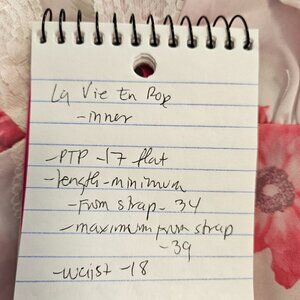 La Vie En Rose
- inner
- PTP - 17 flat
- length - minimum
- From strap - 34
- maximum from strap
- 39
- waist - 18